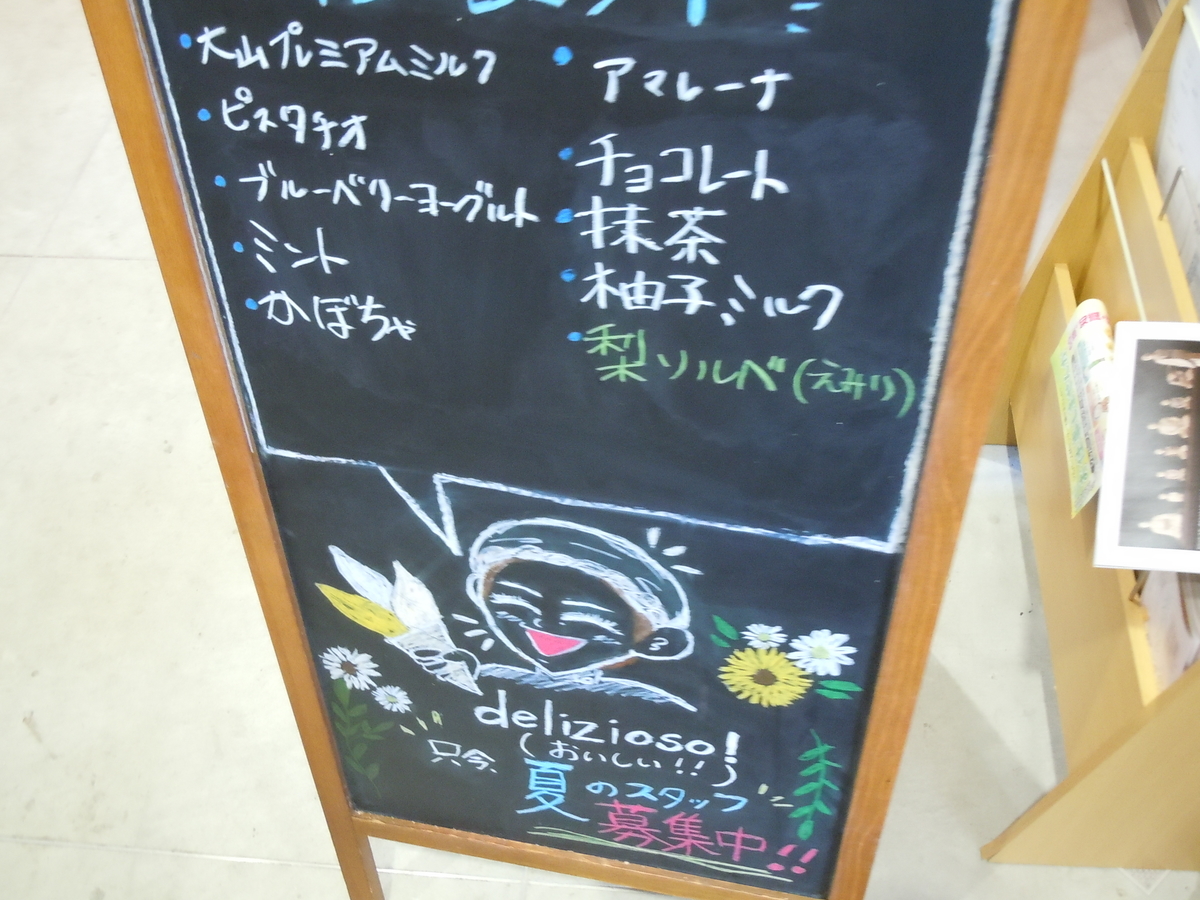 大山プレミアムミルク
ピスタチオ
ブルーベリーヨーグルト
ミント
かぼちゃ
アマレーナ
チョコレート
抹茶
柚子ミルク
梨ソルベ(えみり)
delizioso!
(おいしい!!)
只今、
夏のスタッフ
募集中!!